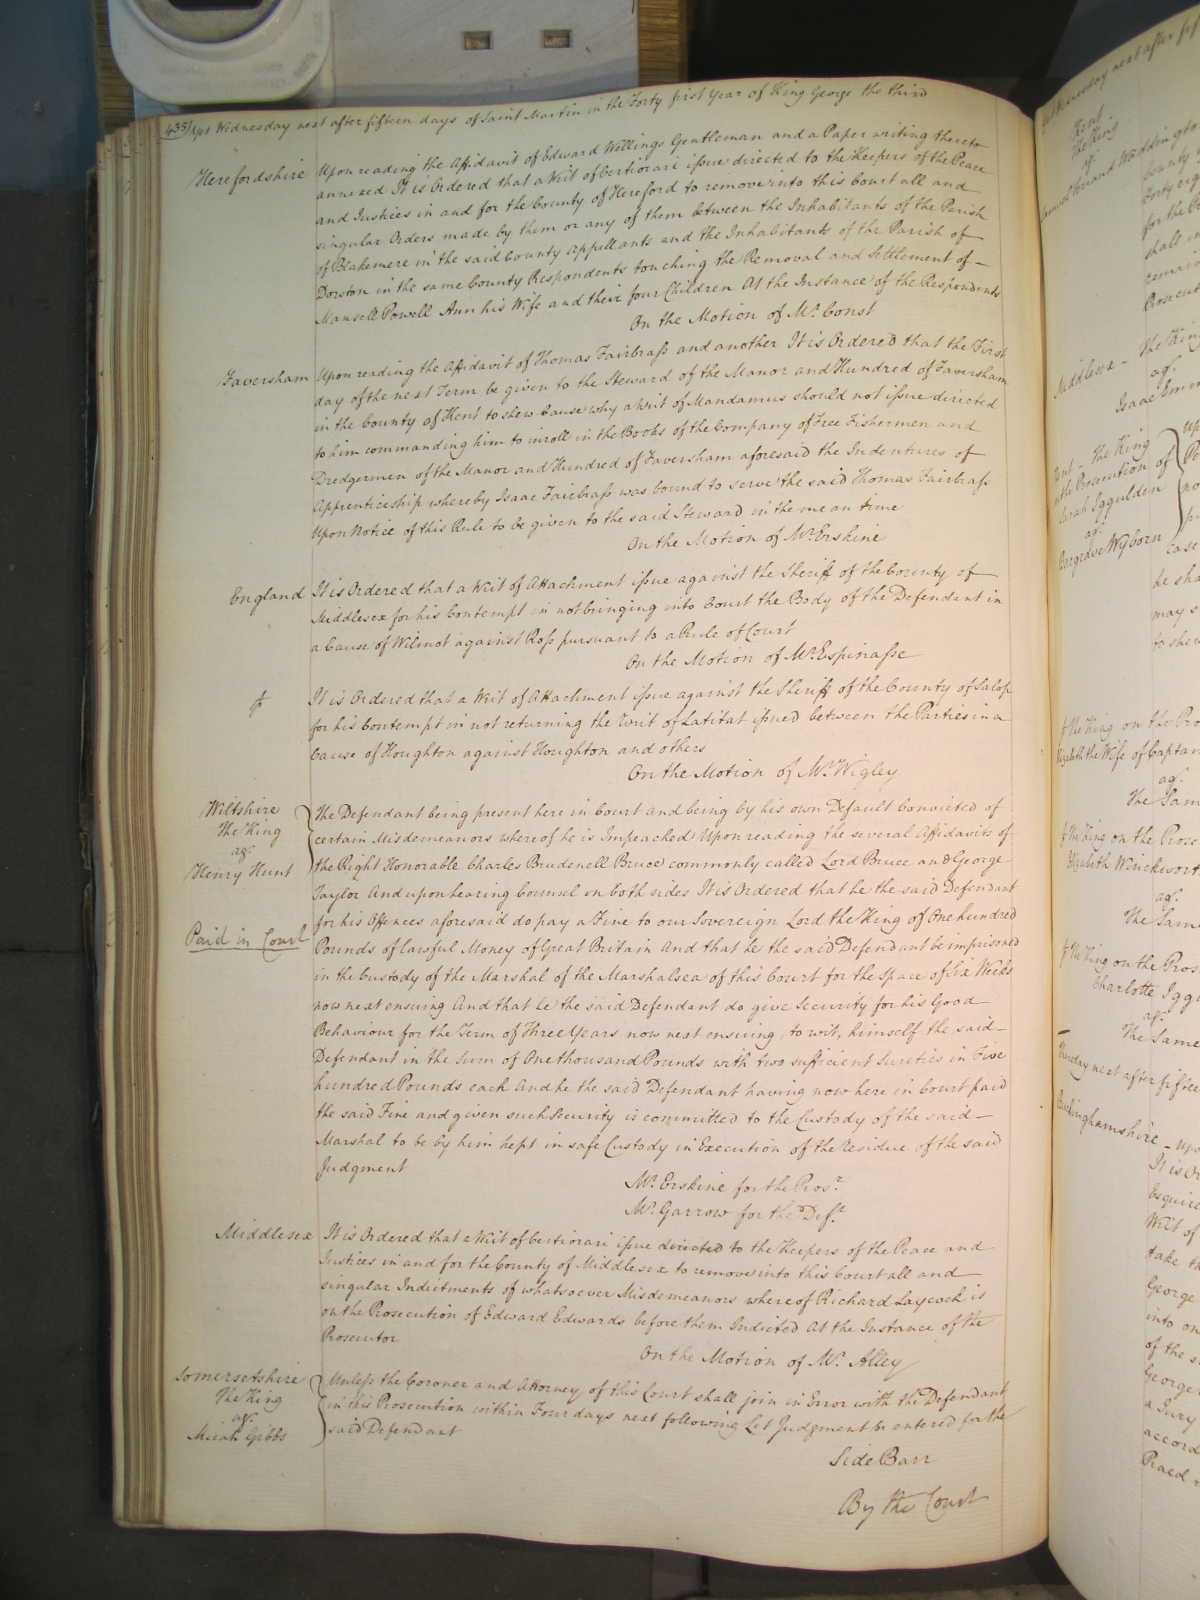 435 Yet Wednesday next after fifteen days of Saint Martin in the Forty first Year of King George the third
Herefordshire
Upon reading the Affidavit of Edward Wellings Gentleman and a Paper writing thereto
annexed It is Ordered that a Writ of Certiorari issue directed to the Keepers of the Peace
and Justices in and for the County of Hereford to remove into this Court all and
singular Orders made by them or any of them between the Inhabitants of the Parish
of Blakemere in the said County Appellants and the Inhabitants of the Parish of
Dorston in the same County Respondents touching the Removal and Settlement of
Mansell Powell Ann his Wife and their four Children At the Instance of the Respondents
On the Motion of Mr. Const
Faversham
Upon reading the Affidavit of Thomas Fairbrass and another It is Ordered that the First
day of the next Term be given to the Steward of the Manor and Hundred of Faversham
in the County of Kent to shew Cause why a Writ of Mandamus should not issue directed
to him commanding him to inroll in the Books of the Company of Free Fishermen and
Dredgermen of the Manor and Hundred of Faversham aforesaid the Indentures of
Apprenticeship whereby Isaac Fairbrass was bound to serve the said Thomas Fairbrass
Upon Notice of this Rule to be given to the said Steward in the mean time
On the Motion of Mr. Erskine
England
It is Ordered that a Writ of Attachment issue against the Sheriff of the County of
Middlesex for his Contempt in not bringing into Court the Body of the Defendant in
a Cause of Wilmot against Ross pursuant to a Rule of Court
On the Motion of Mr. Espinasse
It is Ordered that a Writ of Attachment issue against the Sheriff of the County of Salop
for his Contempt in not returning the Writ of Latitat issued between the Parties in a
Cause of Houghton against Houghton and others
On the Motion of Mr. Wigley
Wiltshire
The King
agt.
Henry Hunt
Paid in Court
The Defendant being present here in Court and being by his own Default Convicted of
certain Misdemeanors whereof he is Impeached Upon reading the several Affidavits of
the Right Honorable Charles Brudenell Bruce commonly called Lord Bruce and George
Taylor And upon hearing Counsel on both sides It is Ordered that he the said Defendant
for his Offences aforesaid do pay a Fine to our Sovereign Lord the King of One hundred
Pounds of lawful Money of Great Britain And that he the said Defendant be imprisoned
in the Custody of the Marshal of the Marshalsea of this Court for the space of Six Weeks
now next ensuing And that he the said Defendant do give Security for his Good
Behaviour for the Term of Three Years now next ensuing, to wit, himself the said
Defendant in the Sum of One thousand Pounds with two sufficient Sureties in Five
hundred Pounds each And he the said Defendant having now here in Court paid
the said Fine and given such Security is committed to the Custody of the said
Marshal to be by him kept in safe Custody in Execution of the Residue of the said
Judgment
Mr. Erskine for the Prosr.
Mr. Garrow for the Deft.
Middlesex
It is Ordered that a Writ of Certiorari issue directed to the Keepers of the Peace and
Justices in and for the County of Middlesex to remove into this Court all and
singular Indictments of whatsoever Misdemeanors whereof Richard Laycock is
on the Prosecution of Edward Edwards before them Indicted At the Instance of the
Prosecutor
On the Motion of Mr. Alley
Somersetshire
The King
agt.
Micah Gibbs
Unless the Coroner and Attorney of this Court shall join in Error with the Defendant
in this Prosecution within Four days next following Let Judgment be entered for the
said Defendant
Side Barr
By the Court
Wednesday next after
Kent
The King
agt.
Waddington
County
for the
shall in
Middlesex - The King
agt.
Isaac
Kent - The King
on the Prosecution of
Sarah Iggulden
agt.
Bargrave Wyborn
case
he sha
may s
to shew
The King on the Pro
Elizabeth the Wife of Captai
agt.
The Sam
The King on the Prose
Elizabeth Winckwort
agt.
The Same
The King on the Pros
Charlotte Iggu
agt.
The Same
Thursday next after fifte
Buckinghamshire - upo
It is Or
Esquire
Writ of
take th
George
into on
of the s
George
a Jury
accord
Praed